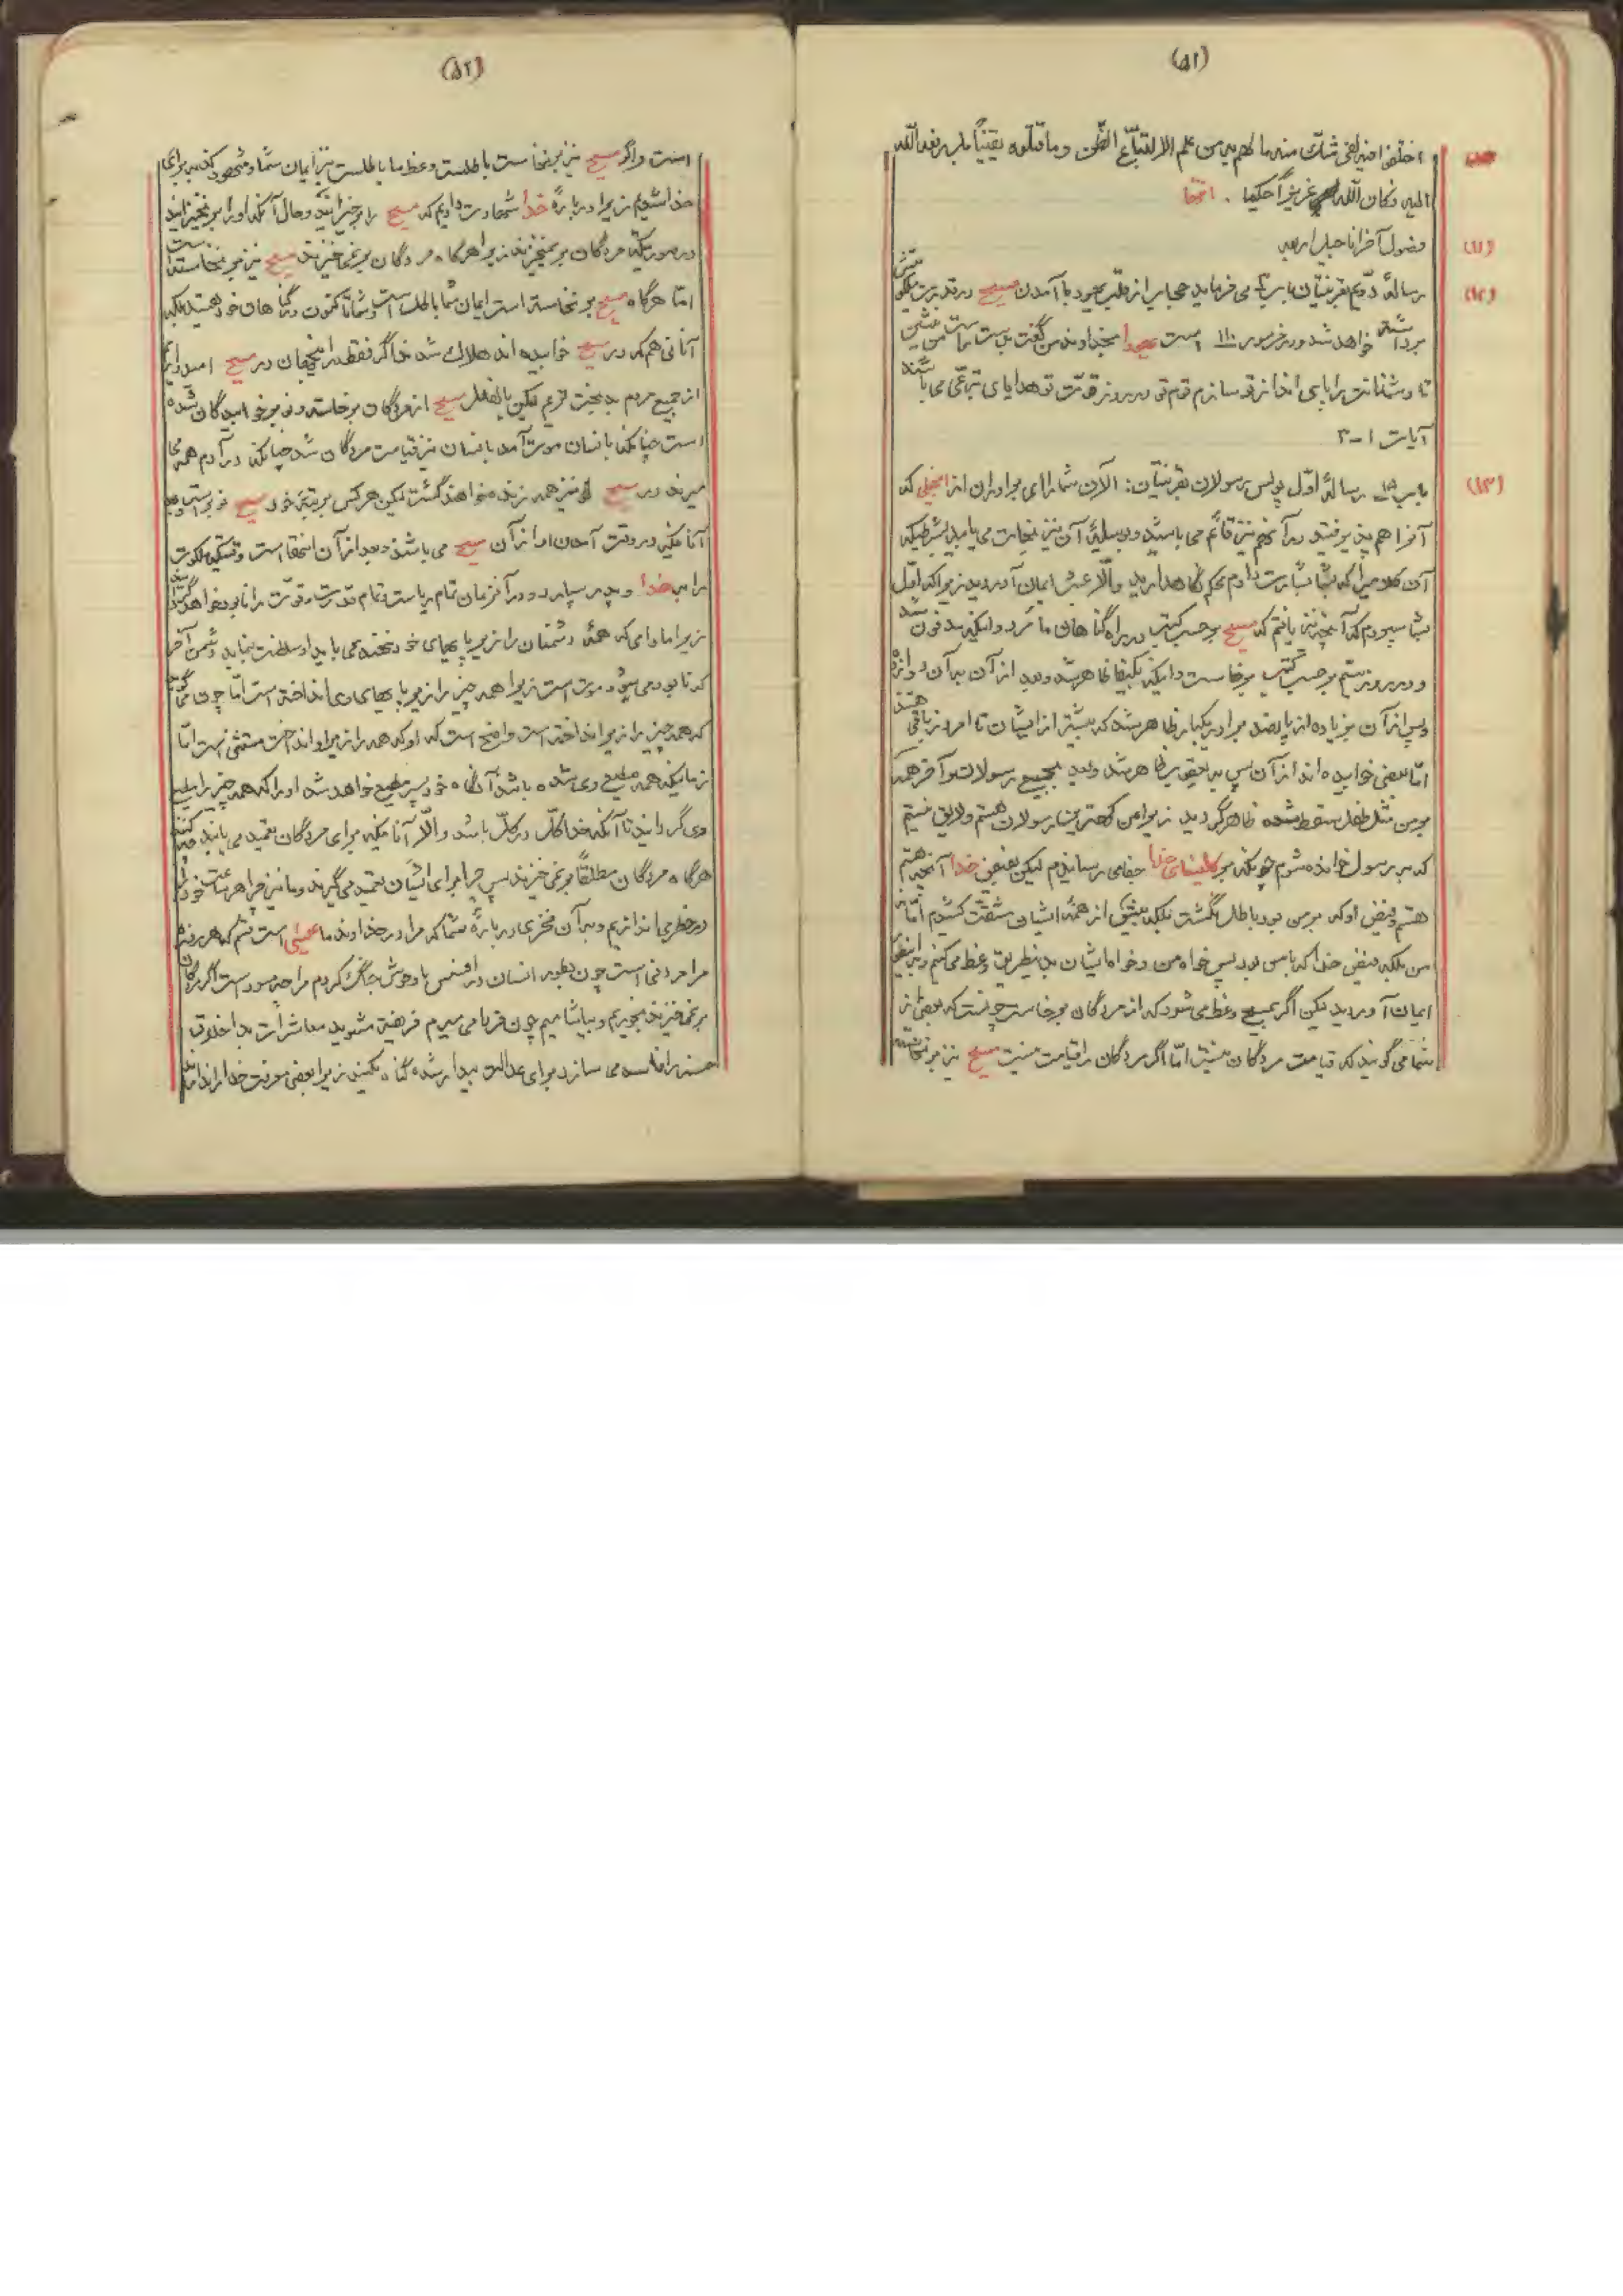 (۵۱)
اختلفوا فیه لفی شک منه ما لهم به من علم الا اتباع الظن و ما قتلوه یقیناً بل رفعه الله
الیه و کان الله عزیزاً حکیما . انتها
(۱۱) فصول آخر اناجیل اربعه
(۱۲) رسالهٔ دویم بقرنتیان باب ۳ می فرماید حجاب از قلب یهود با آمدن مسیح
برداشته خواهد شد و در مزمور ۱۱۰ است یهوه بخداوند من گفت بدست راست من بنشین
تا دشمنانت را پای انداز تو سازم قوم تو در روز قوّت تو هدایای تبرّعی می باشند
آیات ۱-۳
(۱۳) باب ۱۵ رسالهٔ اوّل پولس رسولان بقرنتیان: الآن شما را ای برادران از انجیلی که
آنرا هم پذیرفتید در آنهم نیز قائم می باشید و بوسیلهٔ آن نیز نجات می یابید بشرطیکه
آن کلامیرا که بشما بشارت دادم محکم نگاهدارید والّا عبث ایمان آوردید زیرا که اوّل
بشما سپردم که آنچه نیز یافتم که مسیح برحسب کتب در راه گناهان ما مرد و اینکه مدفون شد
و در روز سیّم برحسب کتب برخاست و اینکه بکیفا ظاهر شد و بعد از آن به آن دوازده
و پس از آن بزیاده از پانصد برادر یکبار ظاهر شد که بیشتر از ایشان تا امروز باقی هستند
امّا بعضی خوابیده اند از آن پس به یعقوب ظاهر شد و بعد بجمیع رسولان و آخر همه
بر من مثل طفل سقط شده ظاهر گردید زیرا من کهترین رسولان هستم و لایق نیستم
که به رسول خوانده شوم چونکه بر کلیسای خدا جفا می رسانیدم لیکن بفیض خدا آنچه هستم
هستم و فیض او که بر من بود باطل نگشت بلکه بیش از همهٔ ایشان مشقّت کشیدم امّا نه
من بلکه فیض خدا که با من بود پس خواه من و خواه ایشان بدینطریق وعظ می کنم و باینطریق
ایمان آوردید لیکن اگر بمسیح وعظ می شود که از مردگان برخاست چونست که بعضی از
شما می گویند که قیامت مردگان نیست امّا اگر مردگان را قیامت نیست مسیح نیز برنخاسته
(۵۲)
است و اگر مسیح نیز برنخاست باطلست وعظ ما باطلست نیز ایمان شما و شهود کذبه برای
خدا شدیم زیرا دربارهٔ خدا شهادت دادیم که مسیح را برخیزانید و حال آنکه او را برنخیزانید
در صورتیکه مردگان برنمیخیزند زیرا هرگاه مردگان برنمی خیزند مسیح نیز برنخاسته است
امّا هرگاه مسیح برنخاسته است ایمان شما باطل است و شما تاکنون در گناهان خود هستید بلکه
آنانی هم که در مسیح خوابیده اند هلاک شدند اگر فقط در اینجهان در مسیح امیدواریم
از جمیع مردم بدبخت تریم لیکن بالفعل مسیح از مردگان برخاسته و نوبر خوابیدگان شده
است چنانکه بانسان موت آمد بانسان نیز قیامت مردگان شد چنانکه در آدم همه می
میرند در مسیح نیز همه زنده خواهند گشت لیکن هرکس برتبهٔ خود مسیح نوبر است و بعد
آنانیکه در وقت آمدن او از آن مسیح می باشند و بعد از آن انتها است وقتیکه ملکوت
را به خدا و پدر سپارد و در آنزمان تمام ریاست و تمام قدرت و قوّت را نابود خواهد گردانید
زیرا مادامی که همهٔ دشمنان را زیر پایهای خود ننهد می باید او سلطنت بنماید دشمن آخر
که نابود می شود موت است زیرا همه چیز را زیر پایهای وی انداخته است امّا چون می گوید
که همه چیز را زیر انداخته است واضح است که او که همه را زیر او انداخت مستثنی است امّا
زمانیکه همه مطیع وی شده باشند آنگاه خود پسر مطیع خواهد شد او را که همه چیز را مطیع
وی گردانید تا آنکه خدا کلّ در کلّ باشد والّا آنانیکه برای مردگان تعمید می یابند چه کنند
هرگاه مردگان مطلقاً برنمی خیزند پس چرا برای ایشان تعمید می گیرند و ما نیز چرا هر ساعت خود را
در خطر می اندازیم و به آن فخری دربارهٔ شما که مرا در خداوند ما عیسی است قسم که هر روزه
مرا مردنی است چون بطور انسان در افسس با وحوش جنگ کردم مرا چه سود است اگر مردگان
برنمی خیزند بخوریم و بیاشامیم چون فردا می میریم فریفته مشوید معاشرات بد اخلاق
حسنه را فاسد می سازد برای عدالت بیدار شده گناه مکنید زیرا بعضی معرفت خدا را ندارند